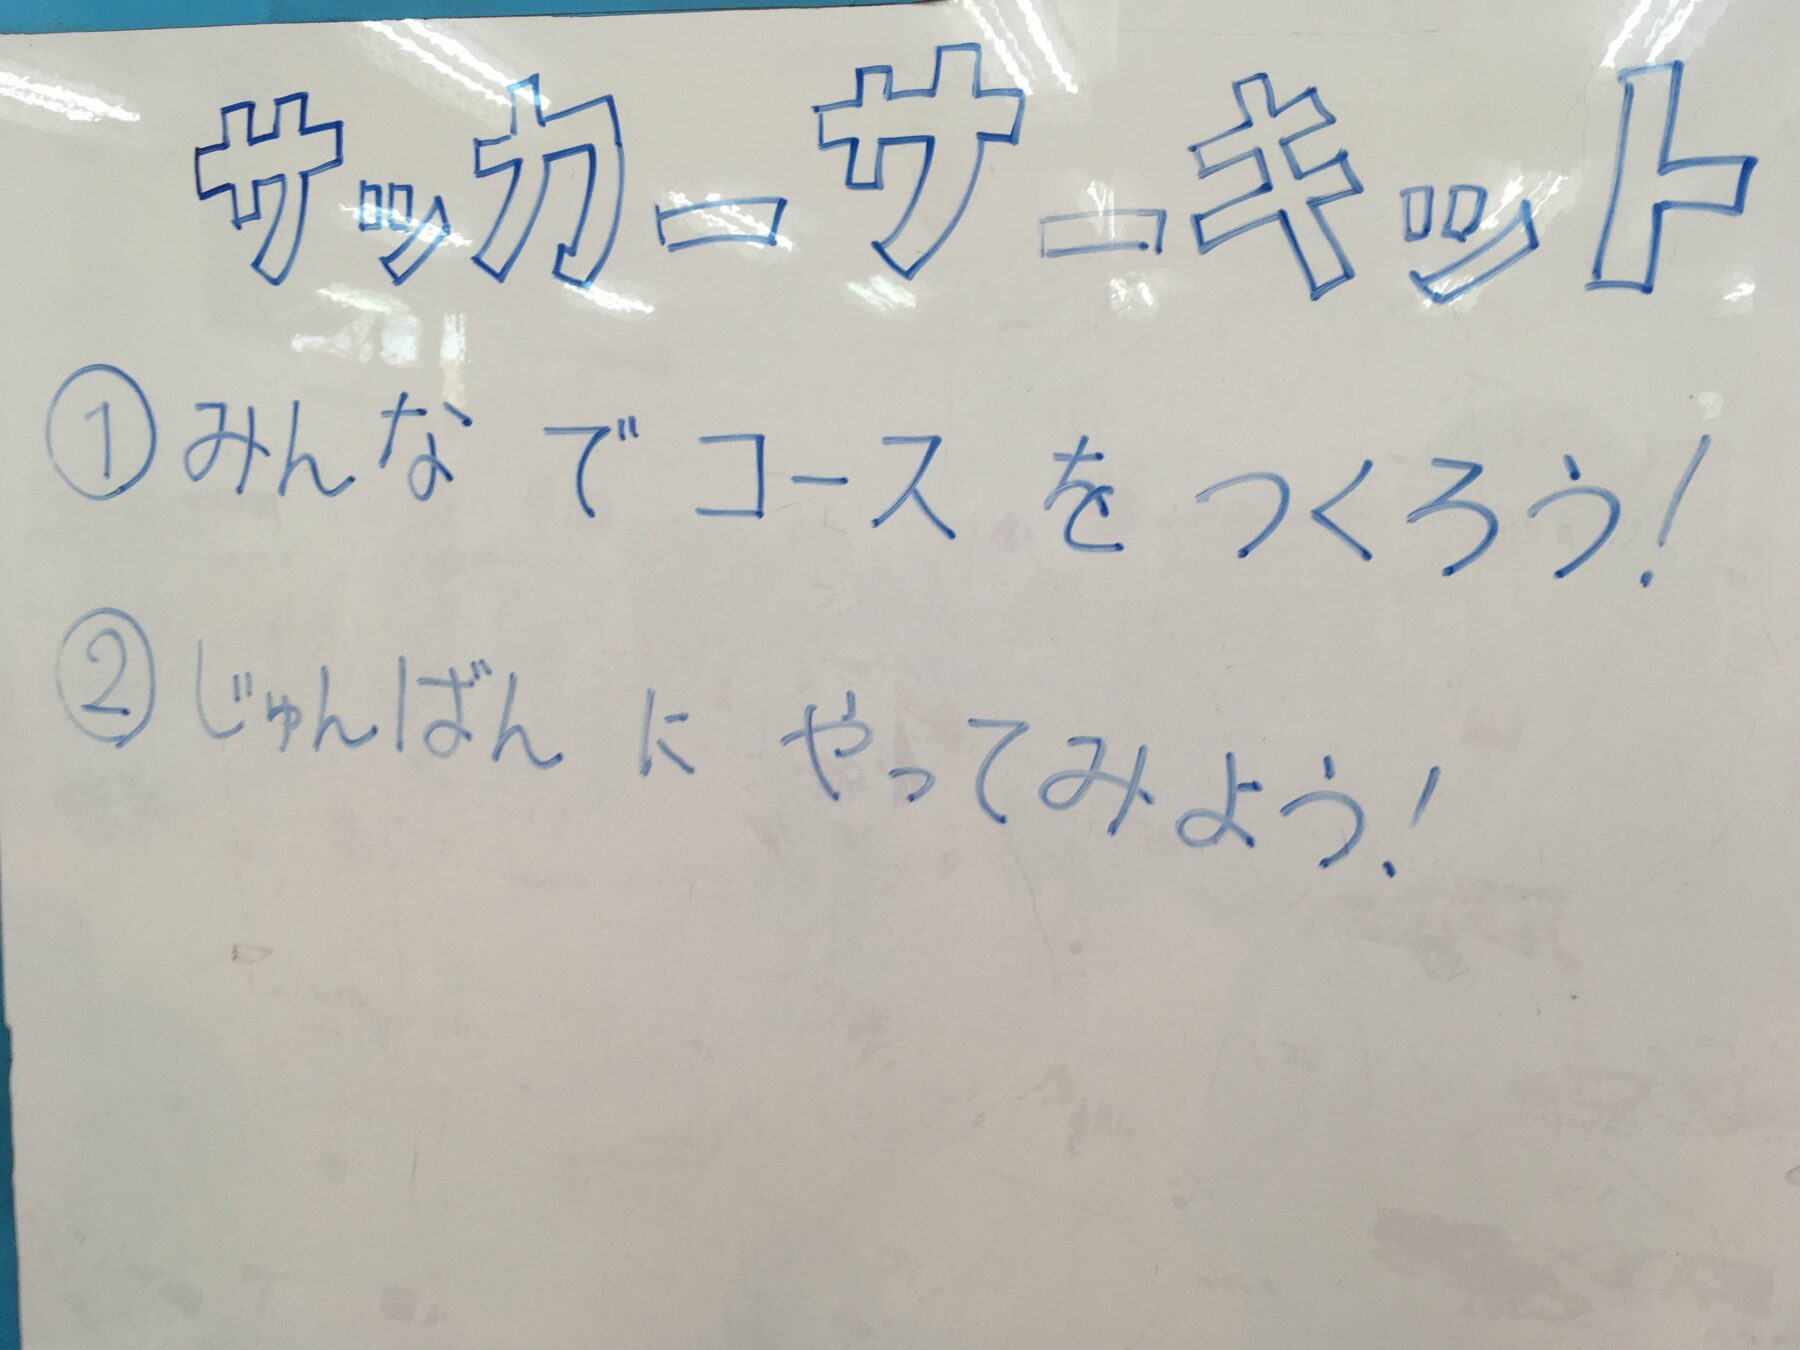 サッカーサーキット
①みんなでコースをつくろう!
②じゅんばんにやってみよう!